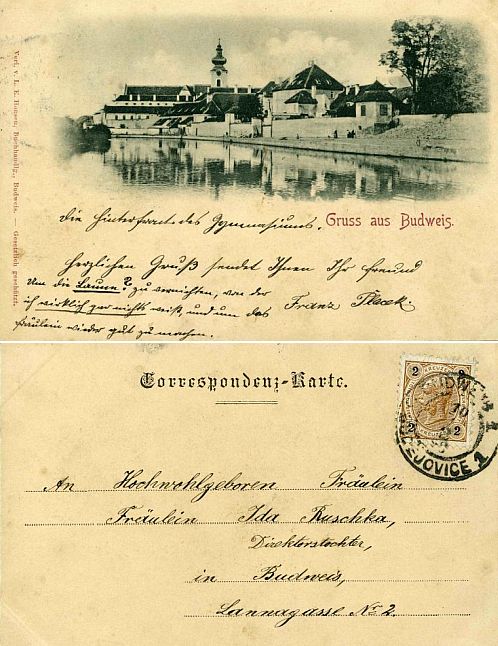 Verl. v. L. E. Hansen, Buchhandlg., Budweis. — Gesetzlich geschützt.
die Hinterfront des Gymnasiums. Gruss aus Budweis.
Herzlichen Gruß sendet Ihnen Ihr Freund
Franz Placek.
Um die Launen? zu vernichten, von der
ich wirklich gar nichts weiß und um das
Fräulein wieder gut zu machen.
Correspondenz-Karte.
2 KREUZER 2
2 2
BUDWEIS 1
BUDĚJOVICE 1
An Hochwohlgeboren Fräulein
Fräulein Ida Reschka,
Direktorstochter,
in Budweis,
Lannagasse No 2.